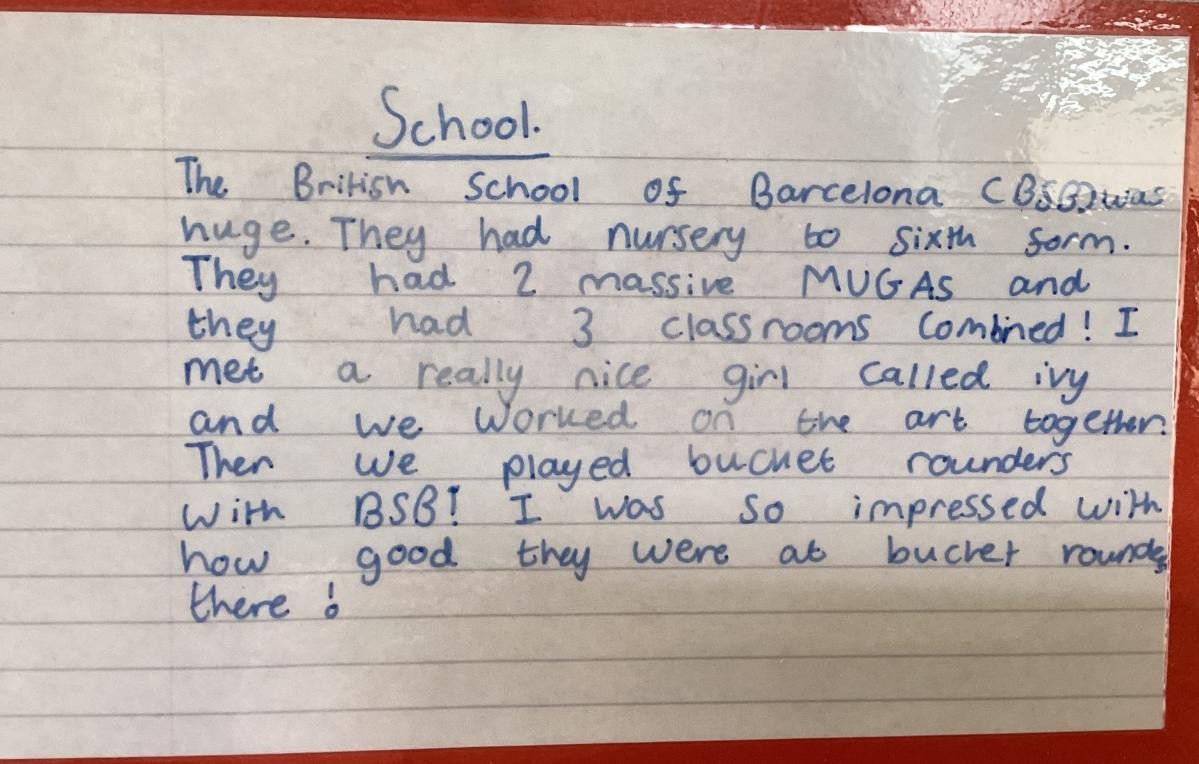 School.
The British School of Barcelona (BSB) was
huge. They had nursery to sixth form.
They had 2 massive MUGAs and
they had 3 classrooms combined! I
met a really nice girl called ivy
and we worked on the art together.
Then we played bucket rounders
with BSB! I was so impressed with
how good they were at bucket
there!